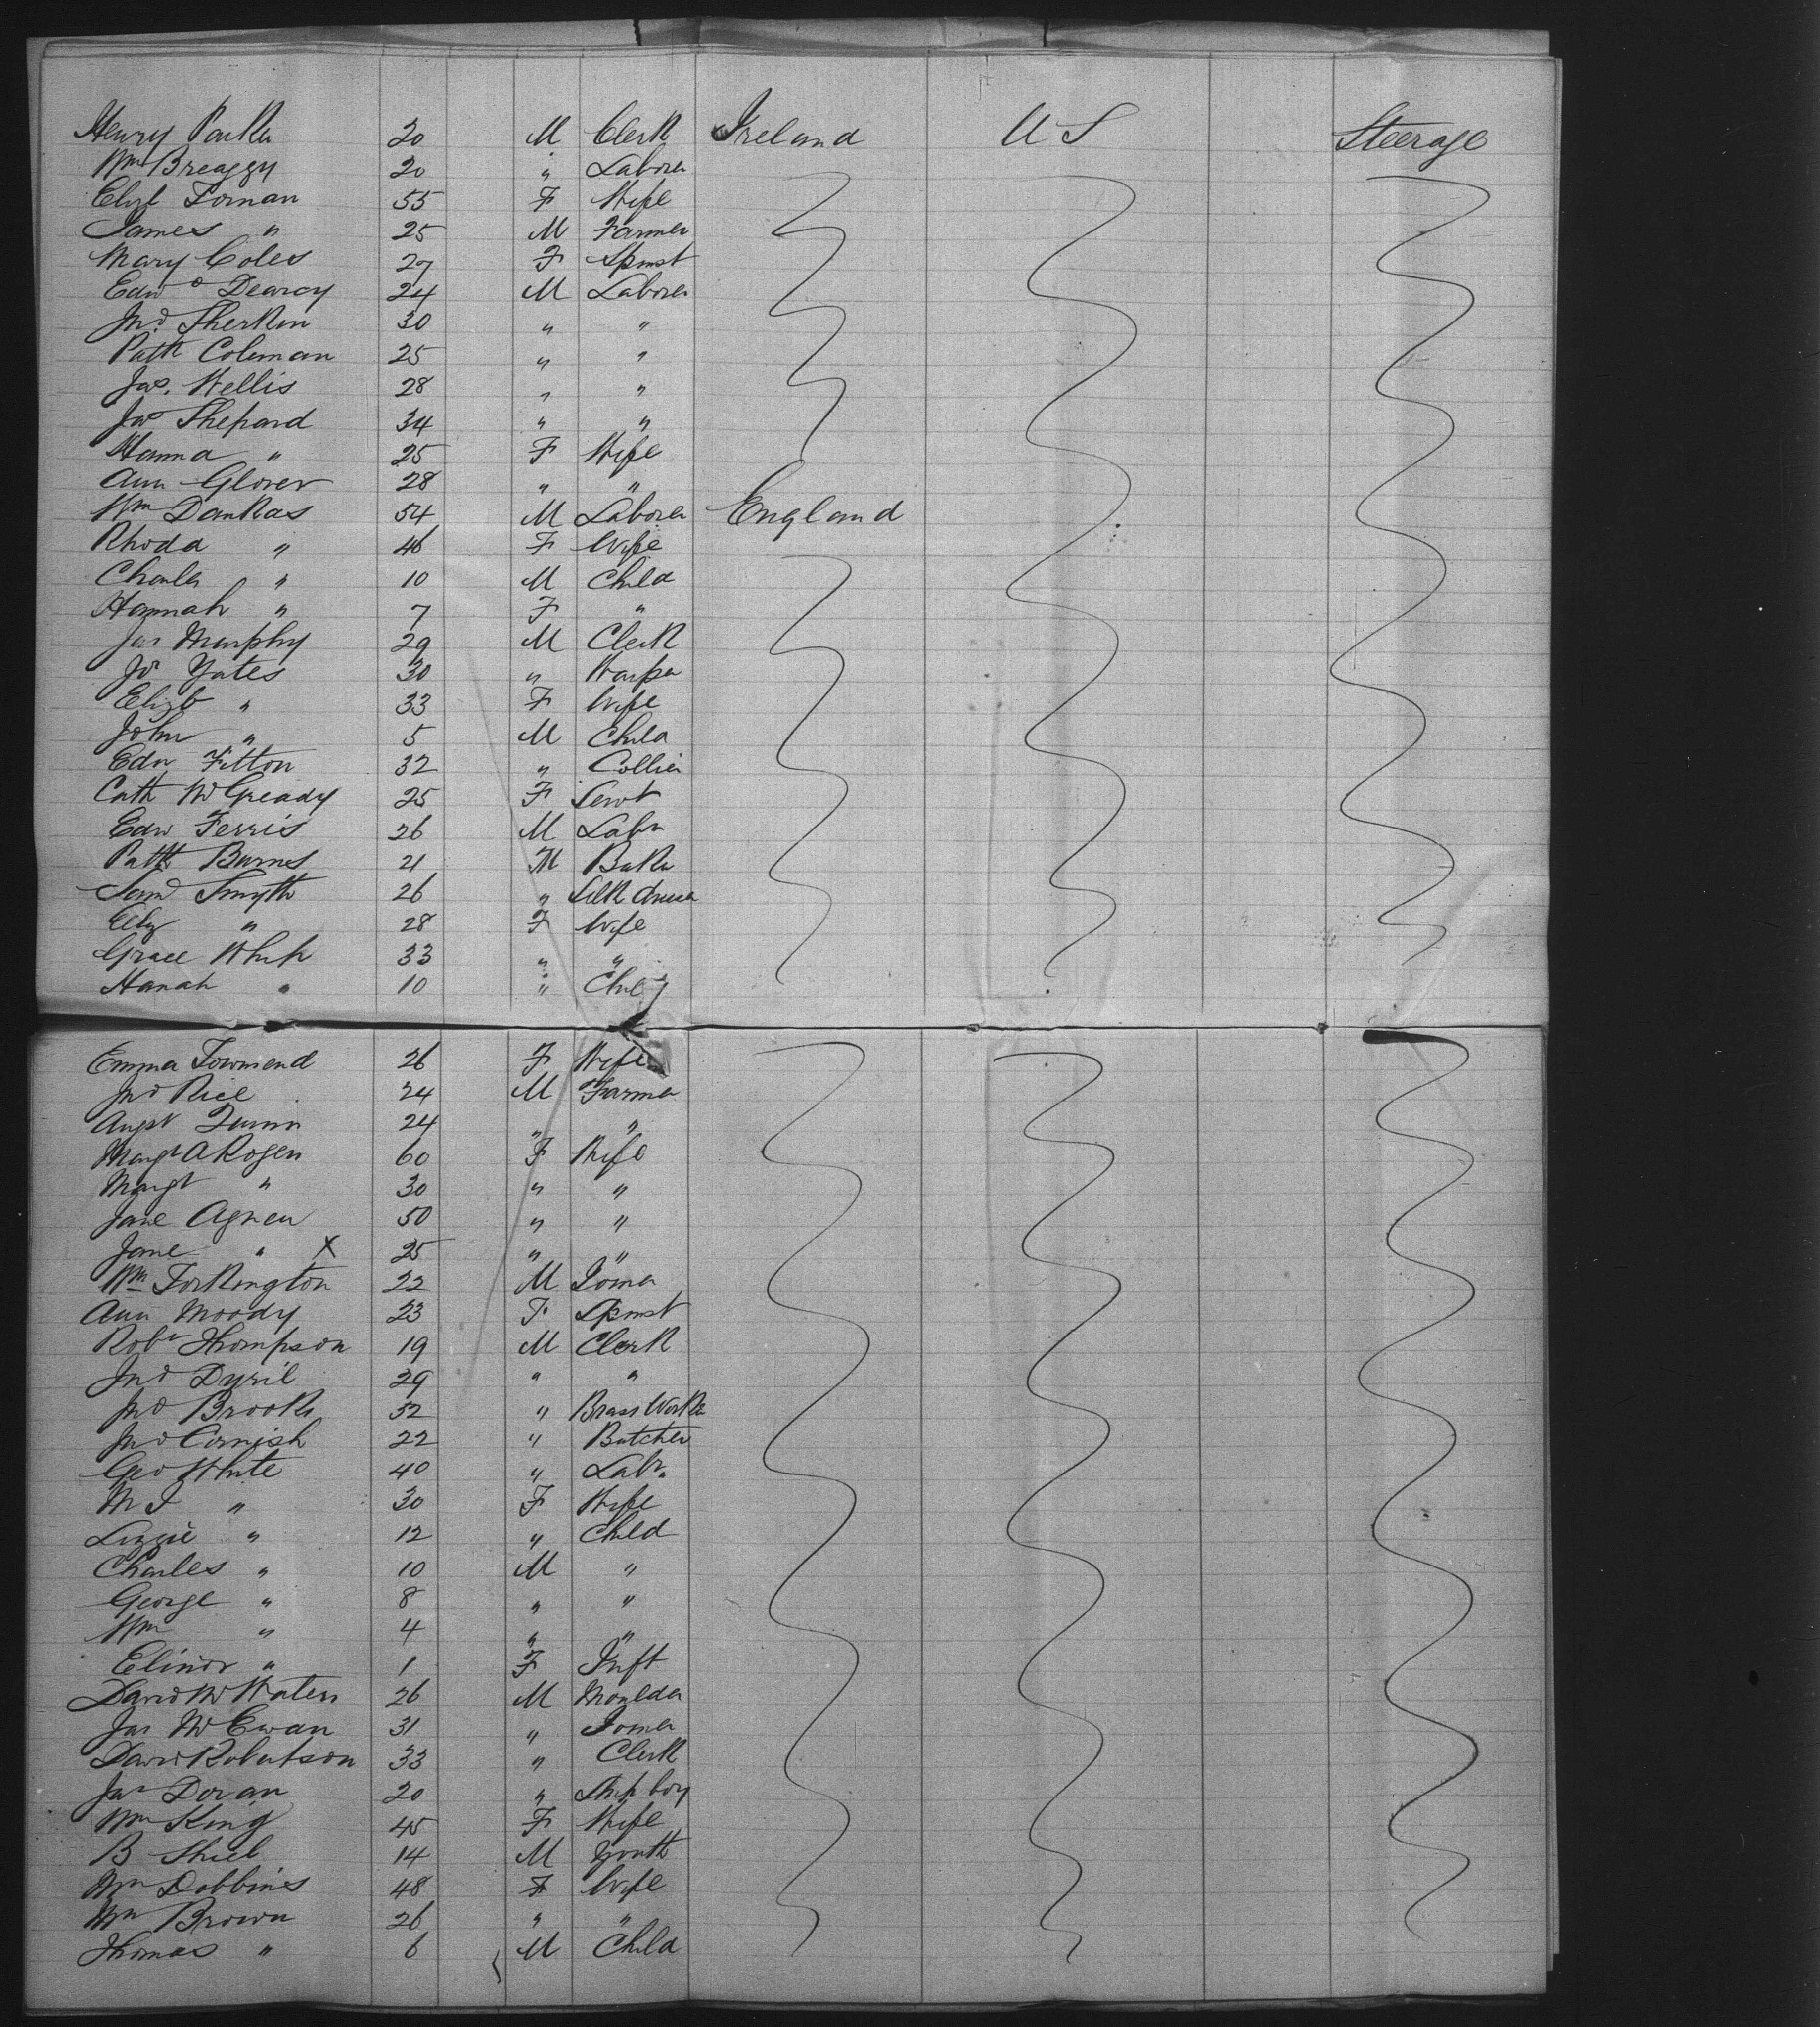 Henry Parker 20 M Clerk Ireland U S Steerage
Wm Breaggy 20 " Laborer
Elizt Tornan 55 F Wife
James " 25 M Farmer
Mary Coles 27 F Spinst
Edwd Dearcy 24 M Laborer
Jno Sherkin 30 " "
Patk Coleman 25 " "
Jas. Wellis 28 " "
Jas Shepard 34 " "
Hanna " 25 F Wife
Ann Glover 28 " "
Wm Dankas 54 M Laborer England
Rhoda " 46 F Wife
Charles " 10 M Child
Hannah " 7 F "
Jas Murphy 29 M Clerk
Jos Yates 30 " Warper
Elizb " 33 F Wife
John " 5 M Child
Edw Fitton 32 " Collier
Cath McGready 25 F Servt
Edw Ferris 26 M Labr
Patk Burnes 21 M Baker
Saml Smyth 26 " Silk
Eliz " 28 F Wife
Grace Whip 33 " "
Hanah " 10 " Child
Emma Townsend 26 F Wife
Jno Rice 24 M Farmer
Augst Quinn 24 " "
Margt A Rogen 60 F Wife
Margt " 30 " "
Jane Agnew 50 " "
Jane " X 25 " "
Wm Torkington 22 M Joiner
Ann Moody 23 F Spinst
Robt Thompson 19 M Clerk
Jno Dyril 29 " "
Jno Brooks 32 " Brass Worker
Jno Cornish 22 " Butcher
Geo White 40 " Labr
M J " 30 F Wife
Lizzie " 12 " Child
Charles " 10 M "
George " 8 " "
Wm " 4 " "
Elinor " 1 F Inft
David McWaters 26 M Moulder
Jas McEwan 31 " Joiner
David Robertson 33 " Clerk
Jas Doran 20 " Ship boy
Mrs King 45 F Wife
B Shiel 14 M Youth
Mrs Dobbines 48 F Wife
Mrs Brown 26 " "
Thomas " 6 M Child